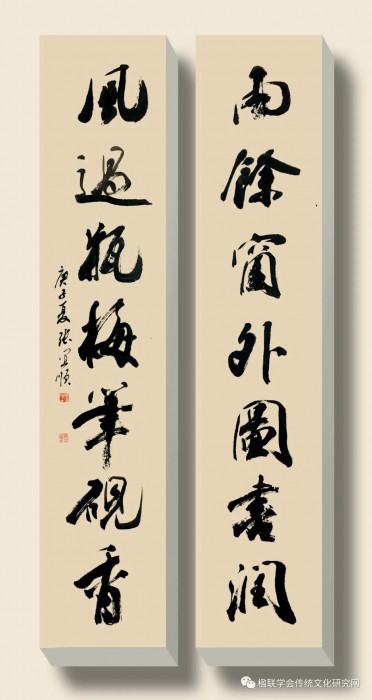 雨餘窗外圖書潤
風過瓶梅筆硯香
庚子夏張宜順
楹联学会传统文化研究网